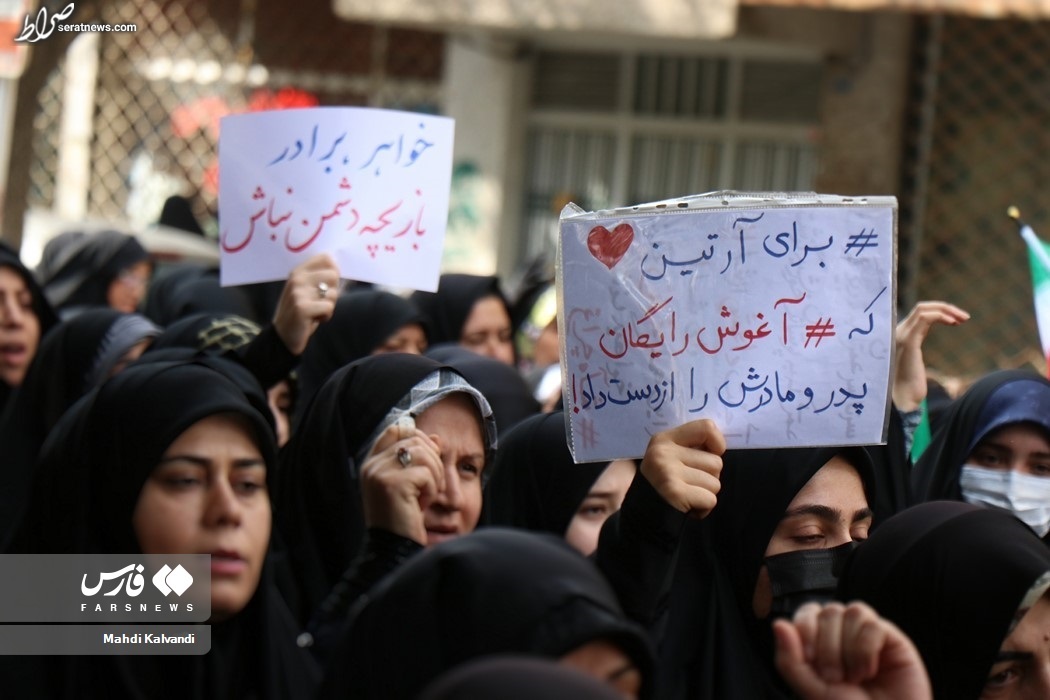 صراط
seratnews.com
خواهر، برادر
بازیچه دشمن نباش
# برای آرتین
که # آغوش رایگان
پدر و مادرش را از دست داد!
فارس
FARSNEWS
Mahdi Kalvandi